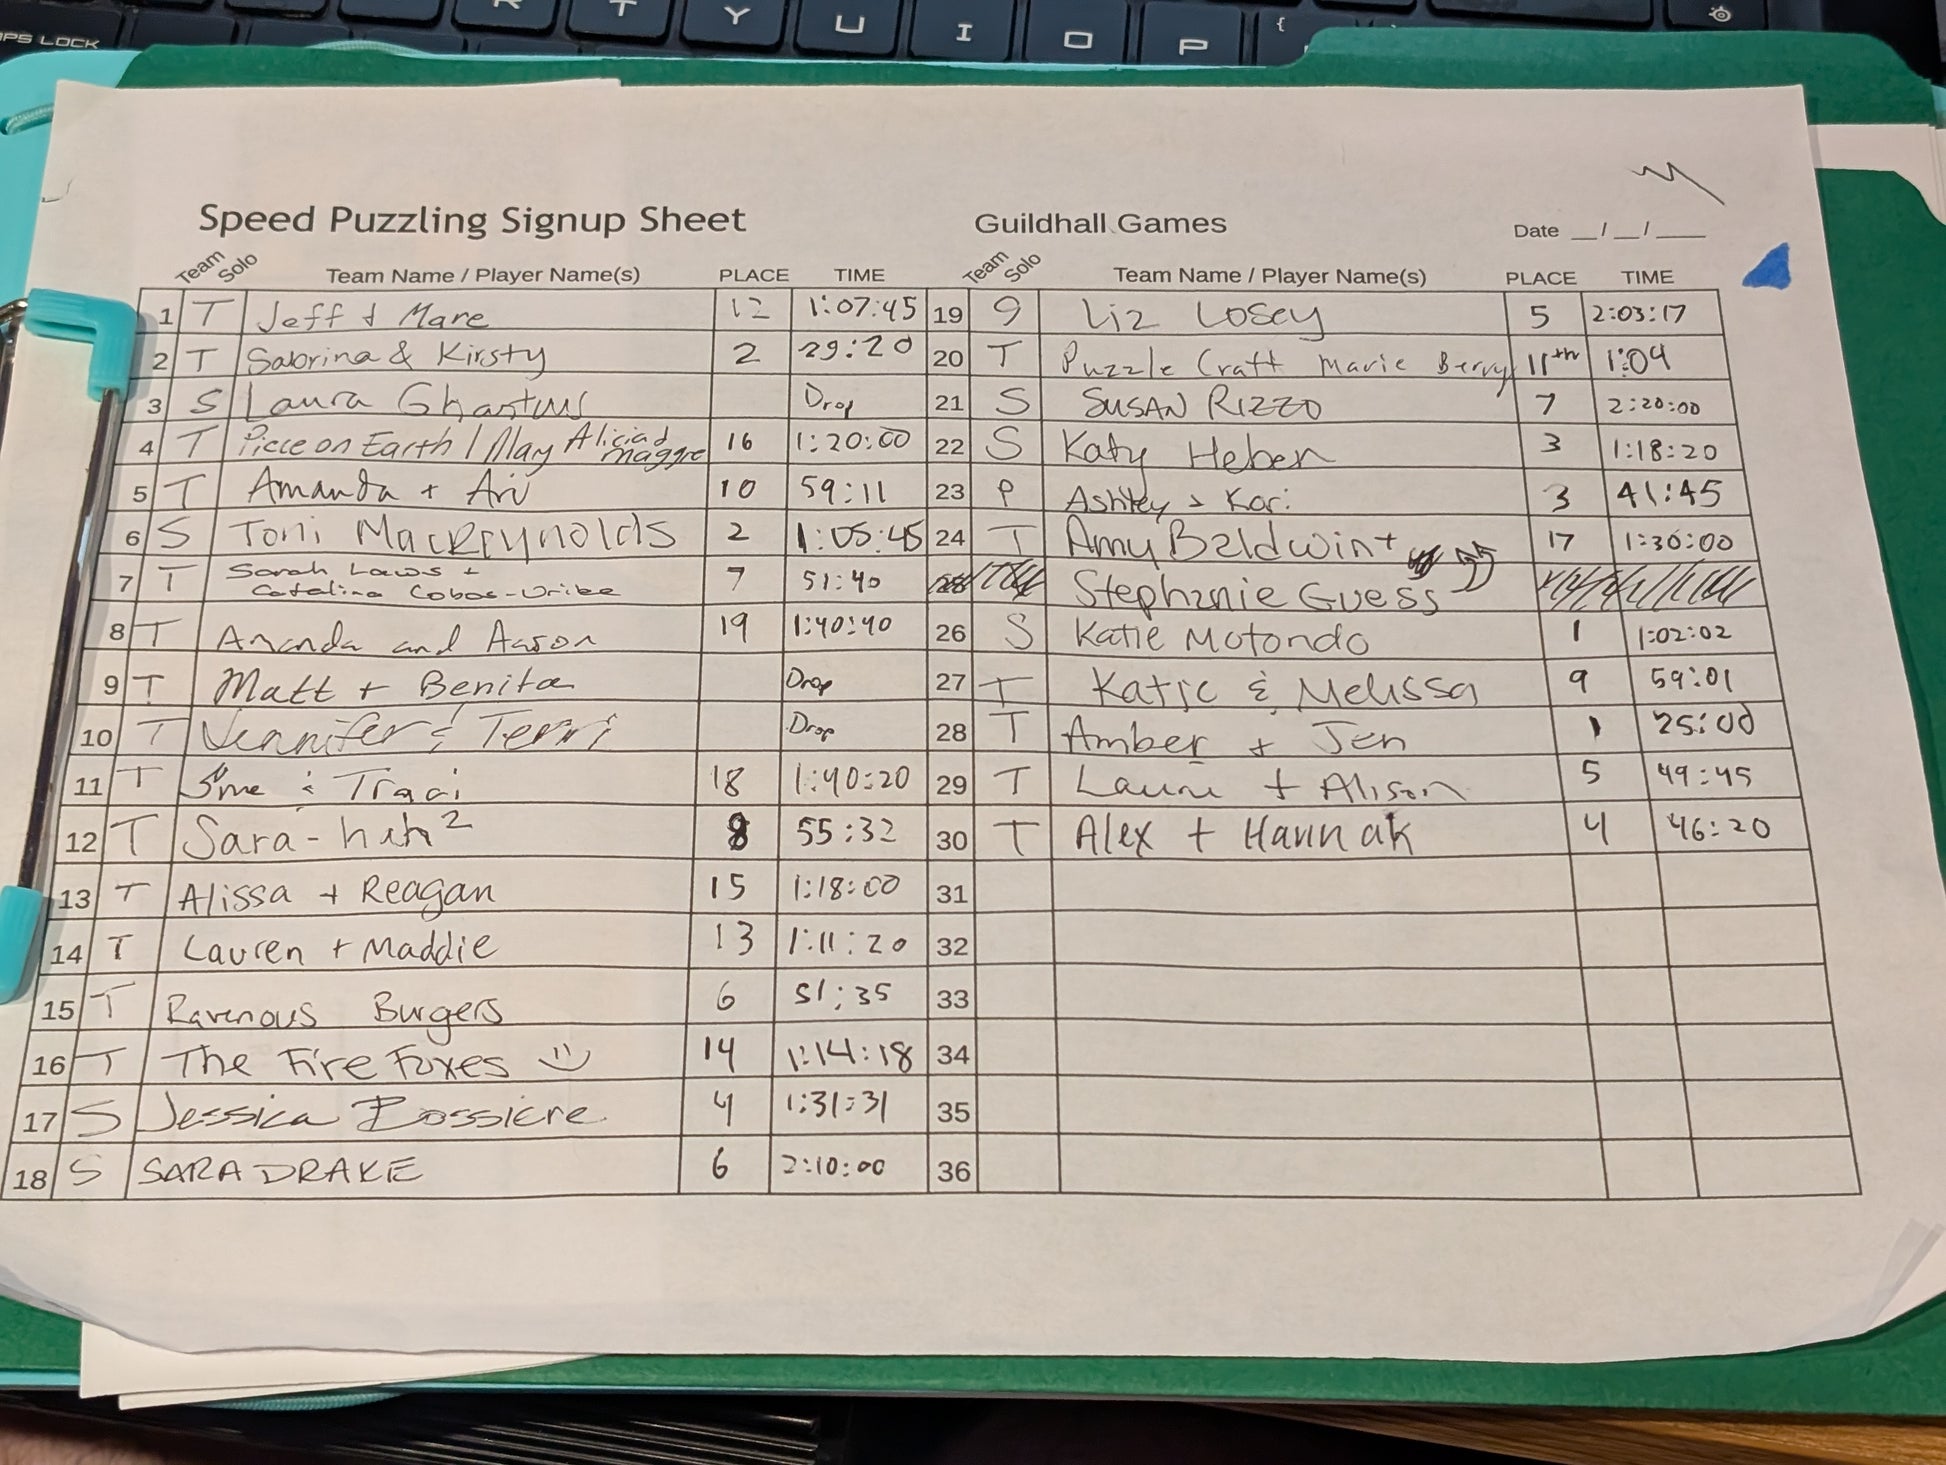 PS LOCK R T Y U I O P {
Speed Puzzling Signup Sheet Guildhall Games Date __/__/___
Team Solo Team Name / Player Name(s) PLACE TIME Team Solo Team Name / Player Name(s) PLACE TIME
1 T Jeff + Mare 12 1:07:45 19 S Liz Losey 5 2:03:17
2 T Sabrina & Kirsty 2 29:20 20 T Puzzle Craft Marie Berry 11th 1:04
3 S Laura Drop 21 S SUSAN RIZZO 7 2:20:00
4 T Piece on Earth / May Alicia & Maggie 16 1:20:00 22 S Katy Heben 3 1:18:20
5 T Amanda + Ari 10 59:11 23 P Ashley & Kari 3 41:45
6 S Toni MacReynolds 2 1:05:45 24 T Amy Baldwin + 17 1:30:00
7 T Sarah Laws + Catalina Cobos-Uribe 7 51:40 Stephanie Guess
8 T Amanda and Aaron 19 1:40:40 26 S Katie Motondo 1 1:02:02
9 T Matt + Benita Drop 27 T Katie & Melissa 9 59:01
10 T Jennifer & Terri Drop 28 T Amber + Jen 1 25:00
11 T & Traci 18 1:40:20 29 T Laurie + Alison 5 49:45
12 T Sara-hah² 8 55:32 30 T Alex + Hannah 4 46:20
13 T Alissa + Reagan 15 1:18:00 31
14 T Lauren + Maddie 13 1:11:20 32
15 T Ravenous Burgers 6 51:35 33
16 T The Fire Foxes 14 1:14:18 34
17 S Jessica Bossiere 4 1:31:31 35
18 S SARA DRAKE 6 2:10:00 36